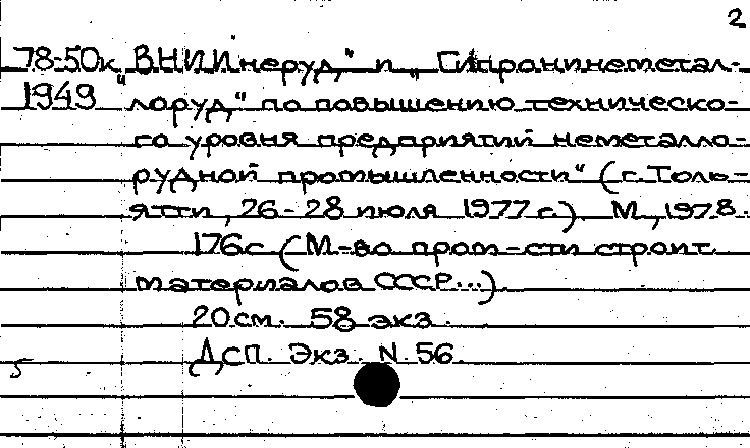 2
78-50к „ВНИИнеруд" и „Гипронинеметал-
1949 лоруд" по повышению техническо-
го уровня предприятий неметалло-
рудной промышленности" (г. Толь-
ятти, 26-28 июля 1977 г.). М., 1978.
176с (М-во пром-сти строит.
материалов СССР...).
20см. 58 экз.
ДСП. Экз. N. 56.
5